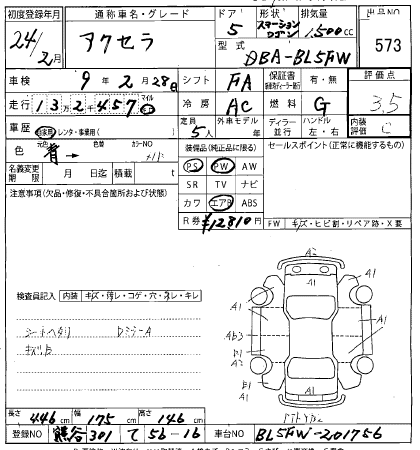 初度登録年月 通称車名・グレード ドア 形状 排気量 出品NO
24/2月 アクセラ 5 ステーションワゴン 1,500cc 573
型式 DBA-BL5FW
車検 9年2月28日 シフト FA 保証書 有・無 評価点
走行 13万2千457 マイル km 冷房 AC 燃料 G 3.5
車歴 自家用・レンタ・事業用( ) 定員 5人 外車モデル 年 ディラー 並行 ハンドル 左・右 内装評価 C
色 元色 青→ 色替 カラーNO 装備品(純正品に限る) セールスポイント(正常に機能するもの)
名義変更期限 月 日迄 積載 t PS PW AW
注意事項(欠品・修復・不具合箇所および状態) SR TV ナビ
カワ エアB ABS
R券 ¥12810円 FW キズ・ヒビ割・リペア跡・X要
検査員記入 内装 キズ・汚レ・コゲ・穴・ヌレ・キレ
A2
A1
A1
A1
A1
シートヘタリ DミラーA
キズB
Ab3
B1
A1
A1
B1
A1
長さ 446cm 幅 175cm 高さ 146cm
登録NO 熊谷301 て 56-16 車台NO BL5FW-201756